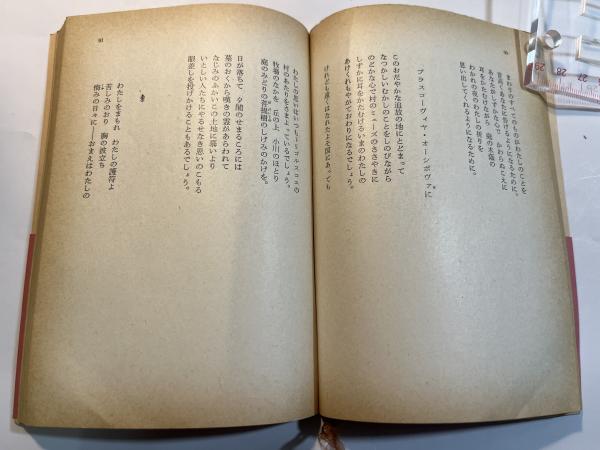 90
まわりのすべてのものがわたしのことを
音高くあなたに告げるようになるために。
あなたがしずかな 庭の木陰の
耳をかたむけながら
わかれの夜のわたしの祈りを
思い出してくれるようになるために。
プラスコーヴィヤ・オーシポヴァに
このおだやかな追放の地にとどまって
なつかしいむかしのことをしのびながら
のどかな心で村のミューズのささやきに
しずかに耳をかたむけるいまのわたしの
あけくれもやがておわりになるでしょう。
けれども遠くはなれたよそ国にあっても
91
わたしの思いはいつもトリゴルスコエの
村のあたりをさまよっているでしょう。
牧場のなかを 丘の上 小川のほとり
庭のみどりの菩提樹のしげみのかげを。
日が落ちて 夕闇のせまるころには
墓のおくから嘆きの霊があらわれて
なじみのあかいこの土地に慕いより
いとしい人たちにやるせなき思いのこもる
眼差しを投げかけることもあるでしょう。
わたしをまもれ わたしの護符よ
苦しみのおり 胸の波立ち
悔みの日々に――おまえはわたしの